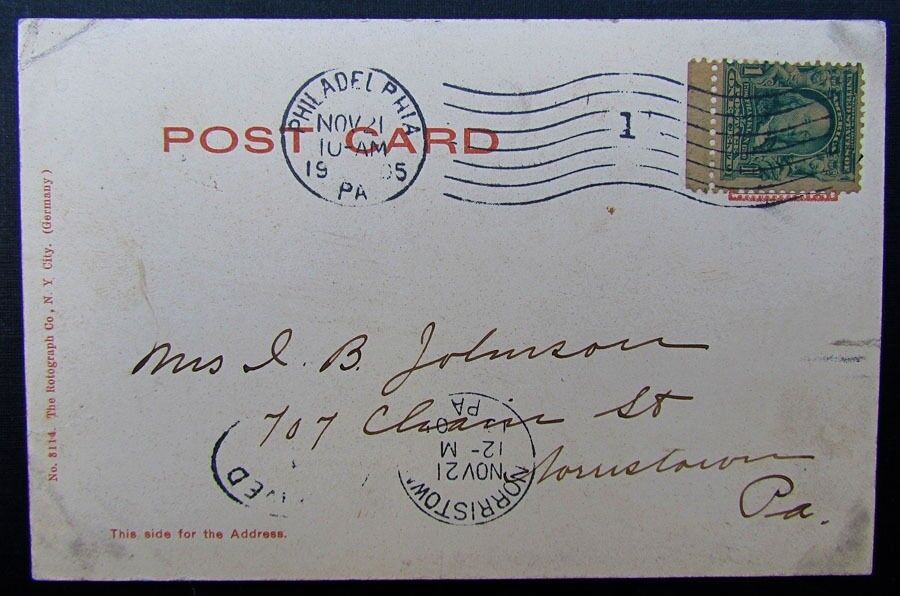 POST CARD
PHILADELPHIA
NOV 21
10-AM
19 05
PA
1
Mrs I. B. Johnson
707 St
Norristown
Pa.
NORRISTOWN
NOV 21
12- M
PA
This side for the Address.
No. 8114. The Rotograph Co, N. Y City. (Germany)